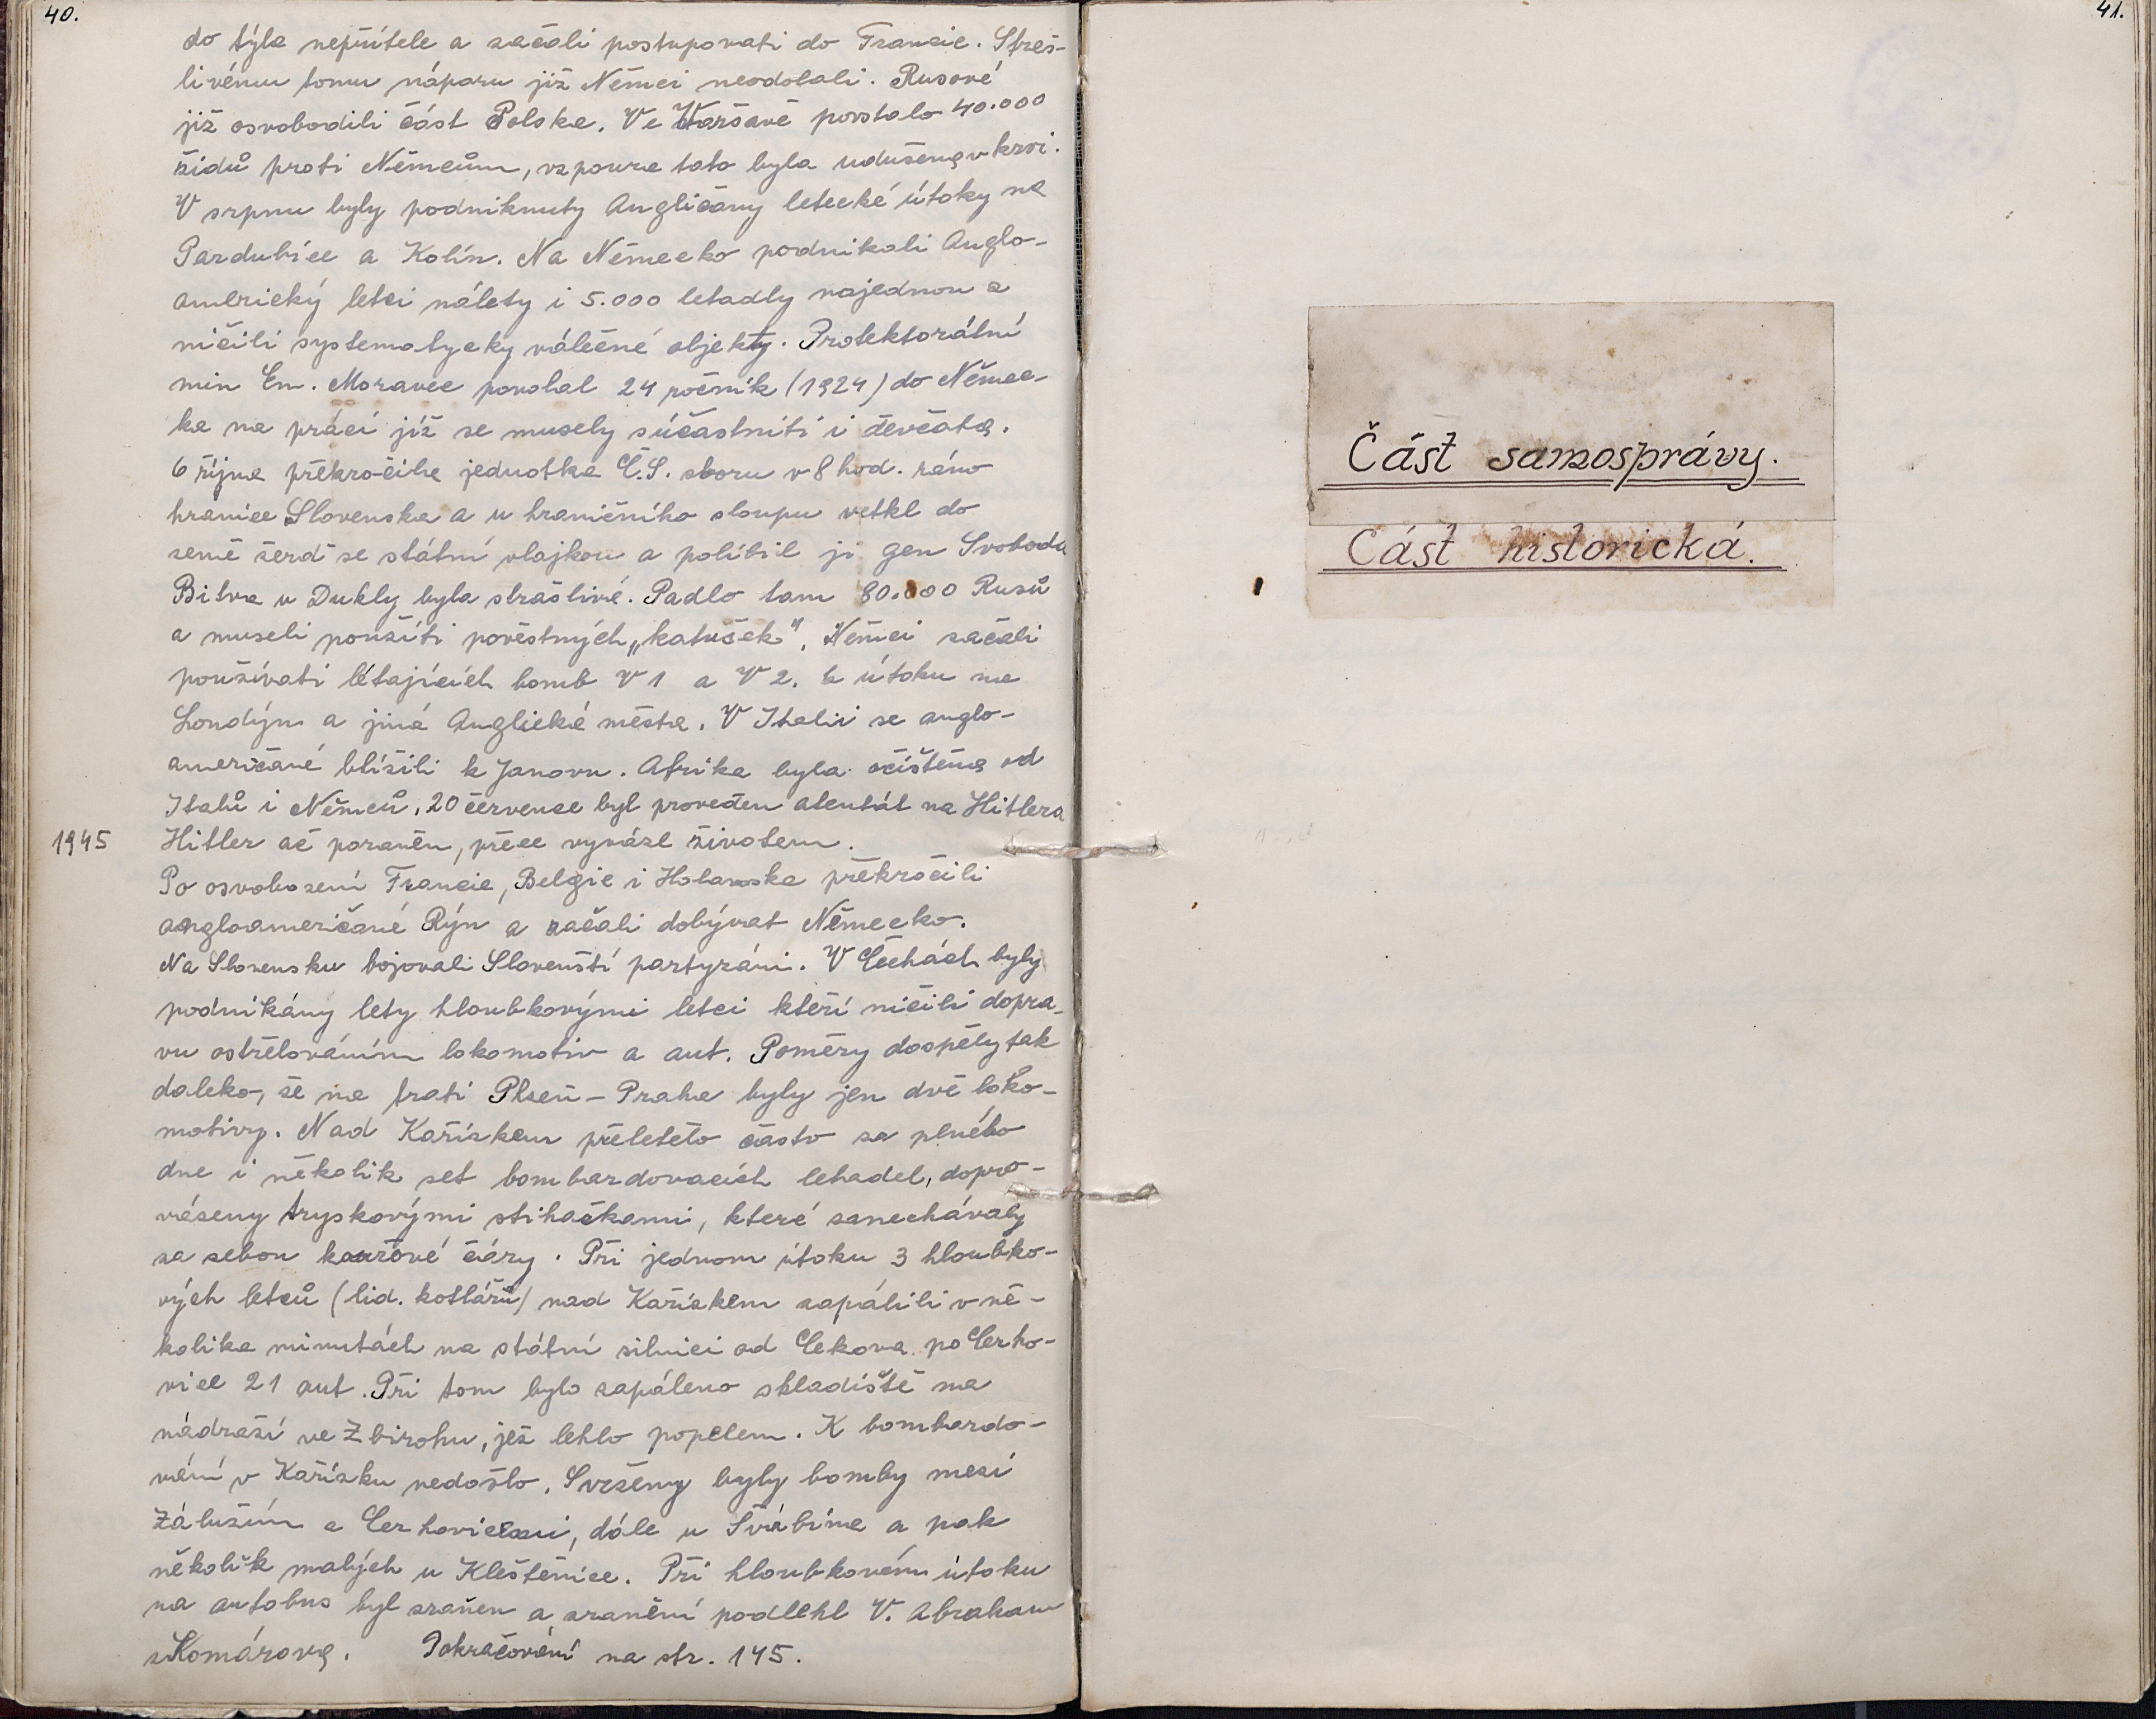 40.
do týla nepřítele a začali postupovati do Francie. Straš-
livému tomu náporu již Němci neodolali. Rusové
již osvobodili část Polska. Ve Waršavě povstalo 40.000
židů proti Němcům, vzpoura tato byla udušena v krvi.
V srpnu byly podniknuty Angličany letecké útoky na
Pardubice a Kolín. Na Německo podnikali Anglo-
americký letci nálety i 5.000 letadly najednou a
ničili systematycky válečné objekty. Protektorátní
min Em. Moravec povolal 24 ročník (1924) do Němec-
ka na práci jíž se musely súčastniti i děvčata.
6 října překročila jednotka Č.S. sboru v 8 hod. ráno
hranice Slovenska a u hraničního sloupu vetkl do
země žerď se státní vlajkou a políbil ji gen Svoboda
Bitva u Dukly byla strašlivá. Padlo tam 80.000 Rusů
a museli použíti pověstných „katušek". Němci začali
používati létajících bomb V 1 a V 2. k útoku na
Londýn a jiná Anglická města. V Italii se anglo-
američané blížili k Janovu. Afrika byla očištěna od
Italů i Němců, 20 července byl proveden atentát na Hitlera
Hitler ač poraněn, přece vyvázl životem.
1945
Po osvobození Francie, Belgie i Holanska překročili
angloameričané Rýn a začali dobývat Německo.
Na Slovensku bojovali Slovenští partyzáni. V Čechách byly
podnikány lety hloubkovými letci kteří ničili dopra-
vu ostřelováním lokomotiv a aut. Poměry dospěly tak
daleko, že na trati Plzeň - Praha byly jen dvě loko-
motivy. Nad Kařízkem přeletělo často za plného
dne i několik set bombardovacích letadel, dopro-
vázeny tryskovými stihačkami, které zanechávaly
za sebou kouřové čáry. Při jednom útoku 3 hloubko-
vých letců (lid. kotlářů) nad Kařízkem zapálili v ně-
kolika minutách na státní silnici od Cekova po Cerho-
vice 21 aut. Při tom bylo zapáleno skladiště na
nádraží ve Zbirohu, jež lehlo popelem. K bombardo-
vání v Kařízku nedošlo. Svrženy byly bomby mezi
Zálužím a Cerhovicemi, dále u Švabína a pak
několik malých u Kleštěnice. Při hloubkovém útoku
na autobus byl zraněn a zranění podlehl V. Abraham
z Komárova. Pokračování na str. 145.
41.
Část samosprávy.
Část historická.